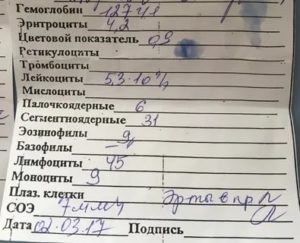 Гемоглобин 127 г/л
Эритроциты 4,2
Цветовой показатель 0,9
Ретикулоциты
Тромбоциты
Лейкоциты 5,3·10⁹/л
Миелоциты
Палочкоядерные 6
Сегментоядерные 31
Эозинофилы 9
Базофилы –
Лимфоциты 45
Моноциты 9
Плаз. клетки
СОЭ 7 мм/ч
Дата 02.03.17 Подпись